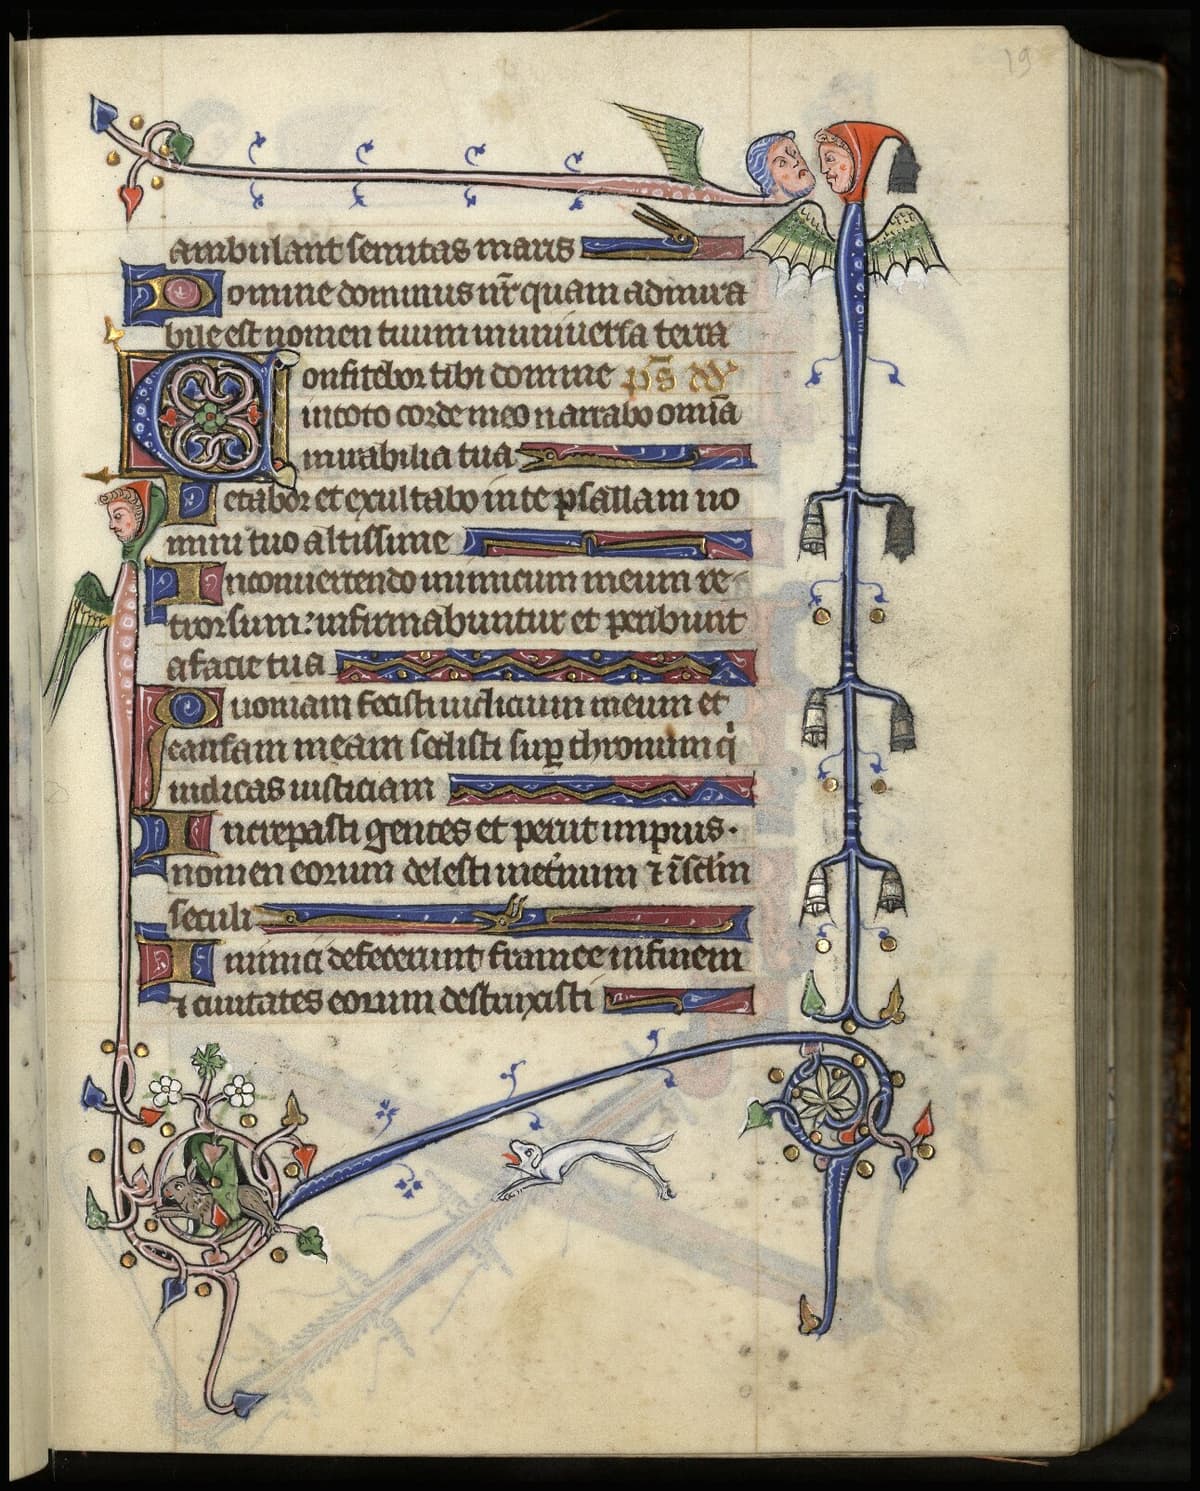 19
ambulant semitas maris
Domine dominus nr̄ quam admira
bile est nomen tuum in universa terra
Confitebor tibi domine ps̄ dd̄
in toto corde meo narrabo omīa
mirabilia tua
Letabor et exultabo in te psallam no
mini tuo altissime
In convertendo inimicum meum re-
trorsum: infirmabuntur et peribunt
a facie tua
Quoniam fecisti iudicium meum et
causam meam sedisti sup̱ thronum qͥ
iudicas iusticiam
Increpasti gentes et periit impius.
nomen eorum delesti inet̓num ⁊ ī sclm̄
seculi
Inimici defecerunt framee in finem
⁊ civitates eorum destruxisti